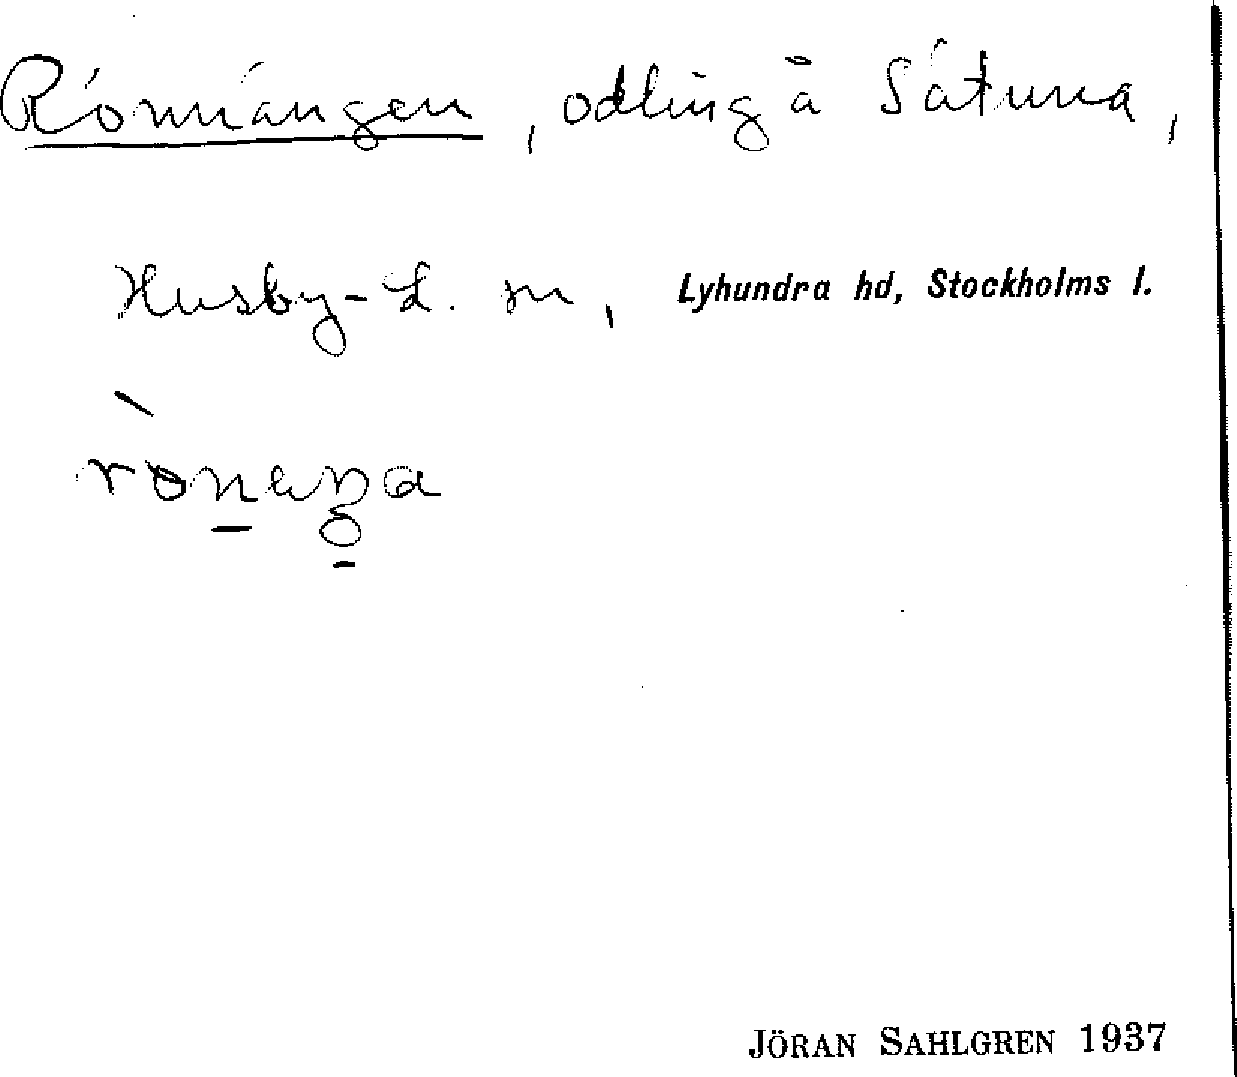 Rönnängen, odling å Såtuna,
Husby-L. sn, Lyhundra hd, Stockholms l.
JÖRAN SAHLGREN 1937